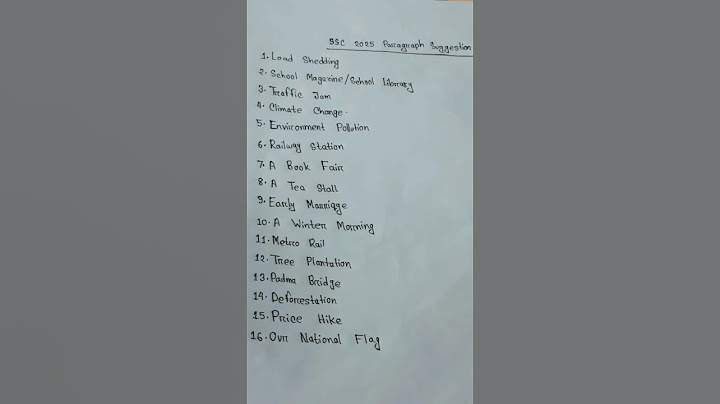 SSC 2025 Paragraph Suggestion
1. Load Shedding
2. School Magazine/School Library
3. Traffic Jam
4. Climate Change.
5. Environment Pollution
6. Railway Station
7. A Book Fair
8. A Tea Stall
9. Early Marriage
10. A Winter Morning
11. Metro Rail
12. Tree Plantation
13. Padma Bridge
14. Deforestation
15. Price Hike
16. Our National Flag